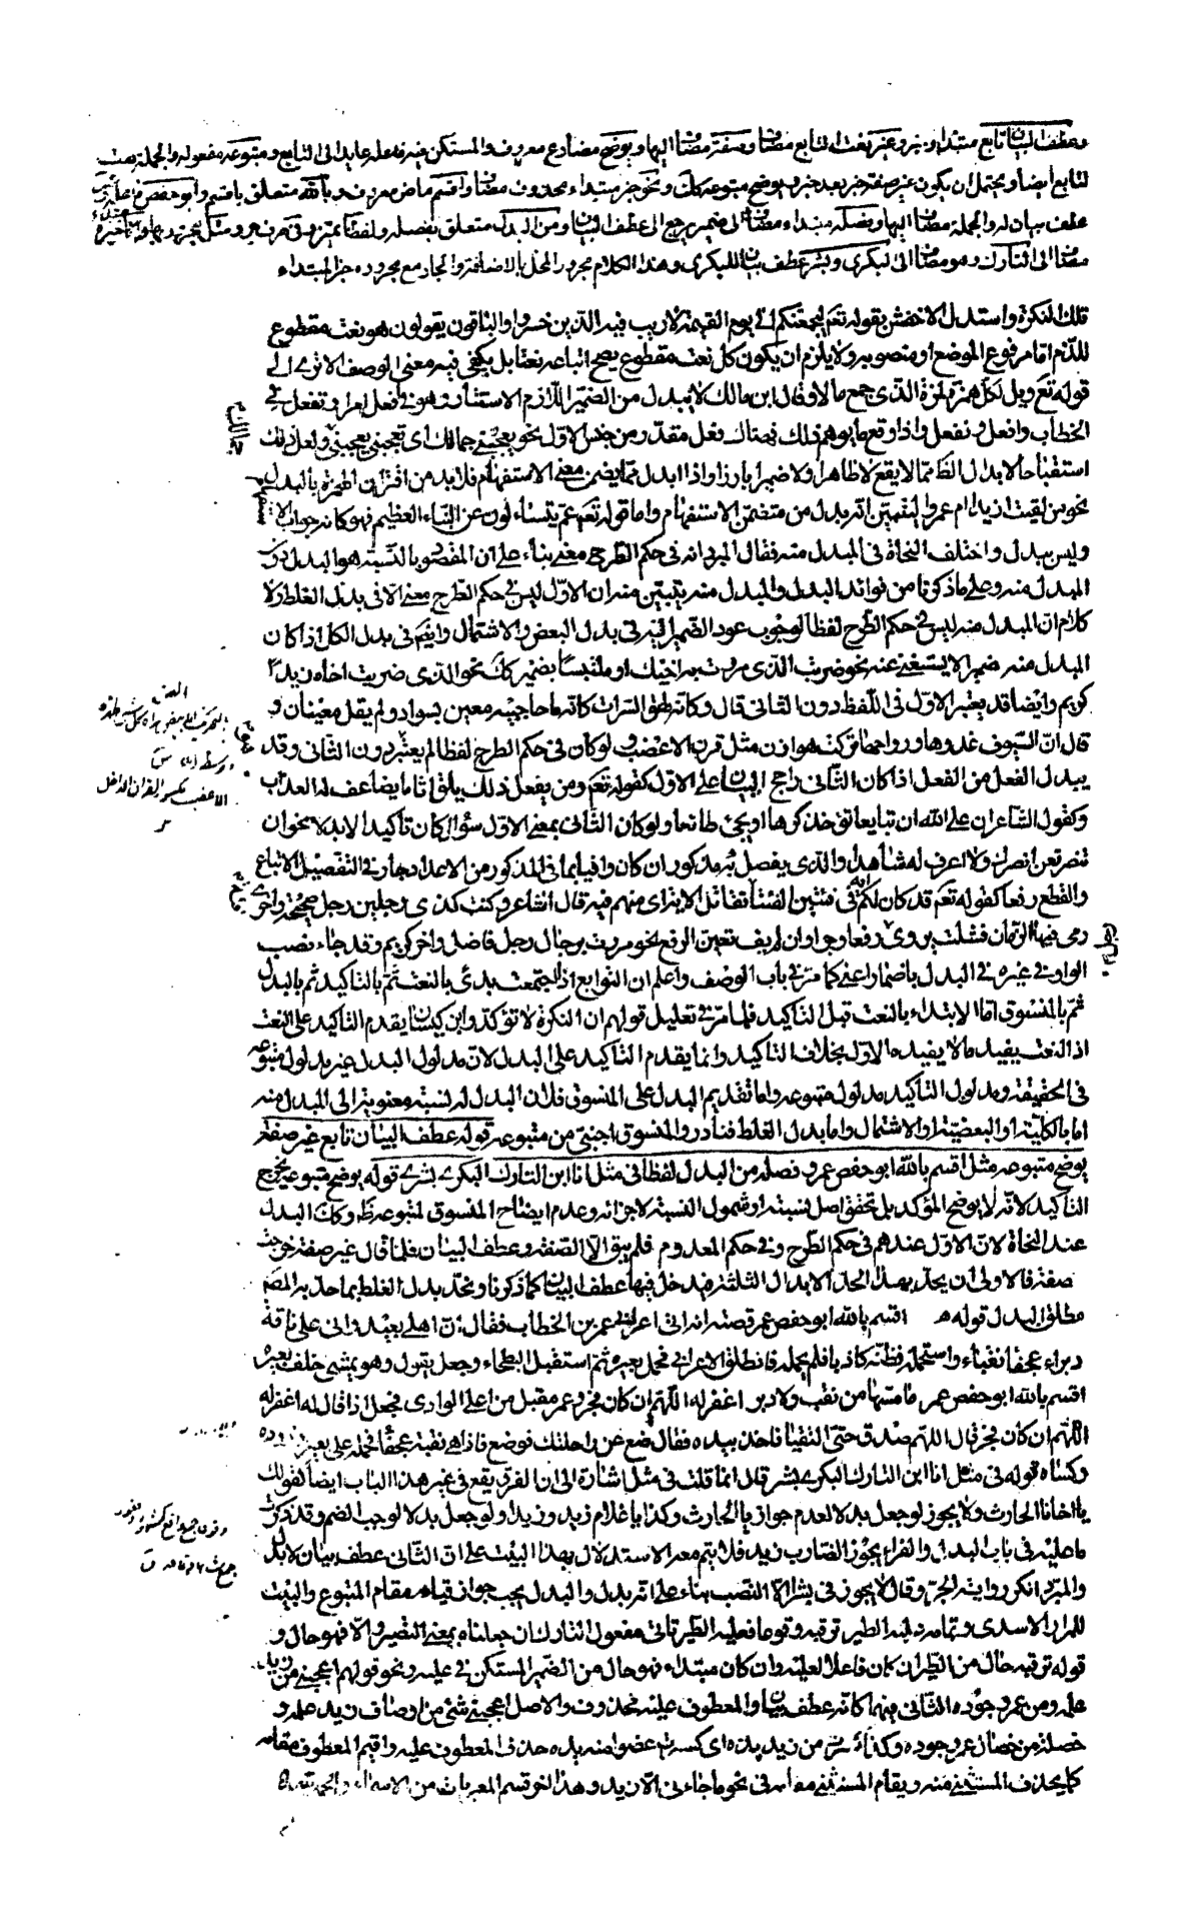 وعطف البيان تابع مبتداء وخبر وغير نعت التابع مضاف وصفة مضاف اليها ويوضح مضارع معروف والمستكن فيه فاعله عايد الى التابع ومتبوعه مفعوله والجملة نعت
لتابع ايضا ويحتمل ان يكون غير صفة خبر بعد خبر ويوضح متبوعه كك ونحو خبر مبتداء محذوف مضاف واقسم ماض معروف وبالله متعلق باقسم وابو حفص فاعله
عطف بيان له والجملة مضاف اليها وفصله مبتداء مضاف الى ضمير يرجع الى عطف البيان ومن البدل متعلق بفصله ولفظا تميز وفى حرف جر ومثل مجرور بها
مضاف الى التارك وهو مضاف الى البكرى وبشر عطف بيان للبكرى وهذا الكلام مجرور المحل بالاضافة والجار مع مجروره خبر المبتداء
تلك النكرة واستدل الاخفش بقوله تعم ليجمعنكم الى يوم القيمة لا ريب فيه الذين خسروا والباقون يقولون هو نعت مقطوع
للذم اما مرفوع الموضع او منصوبه ولا يلزم ان يكون كل نعت مقطوع يصح اتباعه نعتا بل يكفى فيه معنى الوصف الا ترى الى
قوله تعم ويل لكل همزة لمزة الذى جمع مالا وقال ابن مالك لا يبدل من الضمير اللازم الاستتار وهو فى افعل امرا وتفعل فى
الخطاب وافعل ونفعل واذا وقع ما يوهم ذلك فهناك فعل مقدر من جنس الاول نحو تعجبنى جمالك اى تعجبنى يعجبنى ولعل ذلك
استقباحا لابدال الظاهر مما لا يقع لا ظاهرا ولا ضميرا بارزا واذا ابدل مما يضمن معنى الاستفهام فلا بد من اقتران الهمزة بالبدل
نحو من لقيت ازيدا ام عمروا ليتبين انه بدل من متضمن الاستفهام واما قوله تعم عم يتساءلون عن النباء العظيم فهو كانه جواب
وليس ببدل واختلف النحاة فى المبدل منه فقال المبرد انه فى حكم الطرح معنى بناء على ان المقصود بالنسبة هو البدل دون
المبدل منه وعلى ما ذكرنا من فوائد البدل والمبدل منه يتبين منه ان الاول ليس فى حكم الطرح معنى الا فى بدل الغلط ولا
كلام ان المبدل منه ليس فى حكم الطرح لفظا لوجوب عود الضمير اليه فى بدل البعض والاشتمال وايضم فى بدل الكل اذا كان
المبدل منه ضميرا لا يستغنى عنه نحو ضربت الذى مررت به اخيك او ملتبسا بضمير كك نحو الذى ضربت اخاه زيدا
كريم وايضا قد يعتبر الاول فى اللفظ دون الثانى قال وكانه لهق السراة كانه ما حاجبيه معين بسواد ولم يقل معينان و
قال ان السيوف غدوها ورواحها تركت هوازن مثل قرن الاعضب ولو كان فى حكم الطرح لفظا لم يعتبر دون الثانى وقد
يبدل الفعل من الفعل اذا كان الثانى راجح البيان على الاول كقوله تعم ومن يفعل ذلك يلق اثاما يضاعف له العذاب
وكقول الشاعر ان على الله ان تبايعا تؤخذ كرها او تجئ طائعا ولو كان الثانى بمعنى الاول سواء كان تأكيدا لا بدلا نحو ان
تنصر تعن انصرك ولا اعرف له شاهدا والذى يفصل به مذكور ان كان وافيا بما فى المذكور من الاعداد جاز فى التفصيل الاتباع
والقطع رفعا كقوله تعم قد كان لكم آية فى فئتين التقتا فئة تقاتل الاية اى منهم فئة قال الشاعر وكنت كذى رجلين رجل صحيحة واخرى
رمى فيها الزمان فشلت يروى رفعا وجرا وان لم يف تعين الرفع نحو مررت برجال رجل فاضل واخر كريم وقد جاء نصب
الوارد فى غيره فى البدل باضمار اعنى كما مر فى باب الوصف واعلم ان التوابع اذا اجتمعت بدئ بالنعت ثم بالتاكيد ثم بالبدل
ثم بالمنسوق اما الابتداء بالنعت قبل التاكيد فلما مر فى تعليل قولهم ان النكرة لا تؤكد وابن كيسان يقدم التاكيد على النعت
اذ النعت يفيد ما لا يفيده الاول بخلاف التاكيد وانما يقدم التاكيد على البدل لان مدلول البدل غير مدلول متبوعه
فى الحقيقة ومدلول التاكيد مدلول متبوعه واما تقديم البدل على المنسوق فلان البدل له نسبة معنوية الى المبدل منه
اما بالكلية او البعضية او الاشتمال واما بدل الغلط فنادر والمنسوق اجنبى من متبوعه قوله عطف البيان تابع غير صفة
يوضح متبوعه مثل اقسم بالله ابو حفص عمر وفصله من البدل لفظا فى مثل انا ابن التارك البكرى بشر قوله يوضح متبوعه يخرج
التاكيد لانه لا يوضح المؤكد بل تحقق اصل نسبته او شمول النسبة لاجزائه وعدم ايضاح المنسوق لمتبوعه ظ وكك البدل
عند النحاة لان الاول عندهم فى حكم الطرح وفى حكم المعدوم فلم يبق الا الصفة وعطف البيان فلما قال غير صفة خرجت
صفة فالاولى ان يحد بهذا الحد الابدال الثلثة فيدخل فيها عطف البيان كما ذكرنا ويحد بدل الغلط بما حد به المصم
مطلق البدل قوله اقسم بالله ابو حفص عمر قصته انه اتى اعرابى عمر بن الخطاب فقال ان اهلى بعيد وانى على ناقة
دبراء عجفا نقباء واستحمله فظنه كاذبا فلم يحمله فانطلق الاعرابى فحمل بعيره ثم استقبل البطحاء وجعل يقول وهو يمشى خلف بعيره
اقسم بالله ابو حفص عمر ما مسها من نقب ولا دبر اغفر له اللهم ان كان فجر وعمر مقبل من اعلى الوادى فجعل اذا قال له اغفر له
اللهم ان كان فجر قال اللهم صدق حتى التقيا فاخذ بيده فقال ضع عن راحلتك فوضع فاذا هى نقبة عجفا فحمله على بعير وزوده
وكساه قوله فى مثل انا ابن التارك البكرى بشر قال انما قلت فى مثل اشارة الى ان الفرق يقع فى غير هذا الباب ايضا كقولك
يا اخانا الحارث ولا يجوز لو جعل بدلا لعدم جواز يا الحارث وكذا يا غلام زيد وزيدا ولو جعل بدلا لوجب الضم وقد ذكرنا
ما عليه فى باب البدل والفراء يجوز الضارب زيد فلا يتم معه الاستدلال بهذا البيت على ان الثانى عطف بيان لا بدل
والمبرد انكر رواية الجر وقال لا يجوز فى بشر الا النصب بناء على انه بدل والبدل يجب جواز قيامه مقام المتبوع والبيت
للمرار الاسدى وتمامه عليه الطير ترقبه وقوعا فعليه الطير ثانى مفعولى التارك ان جعلناه بمعنى المصير والا فهو حال و
قوله ترقبه حال من الطير ان كان فاعلا لعليه وان كان مبتداء فهو حال من الضمير المستكن فى عليه ونحو قولهم اعجبنى من زيد
علمه ومن عمرو جوده الثانى فيهما كانه عطف بيان والمعطوف عليه محذوف والاصل اعجبنى شئ من اوصاف زيد علمه و
خصلة من خصال عمرو جوده وكذا كسرت من زيد يده اى كسرت عضوا منه يده حذف المعطوف عليه واقيم المعطوف مقامه
كما يحذف المستثنى منه ويقام المستثنى مقامه فى نحو ما جاءنى الا زيد وهذا اخر قسم المعربات من الاسماء والحمد لله